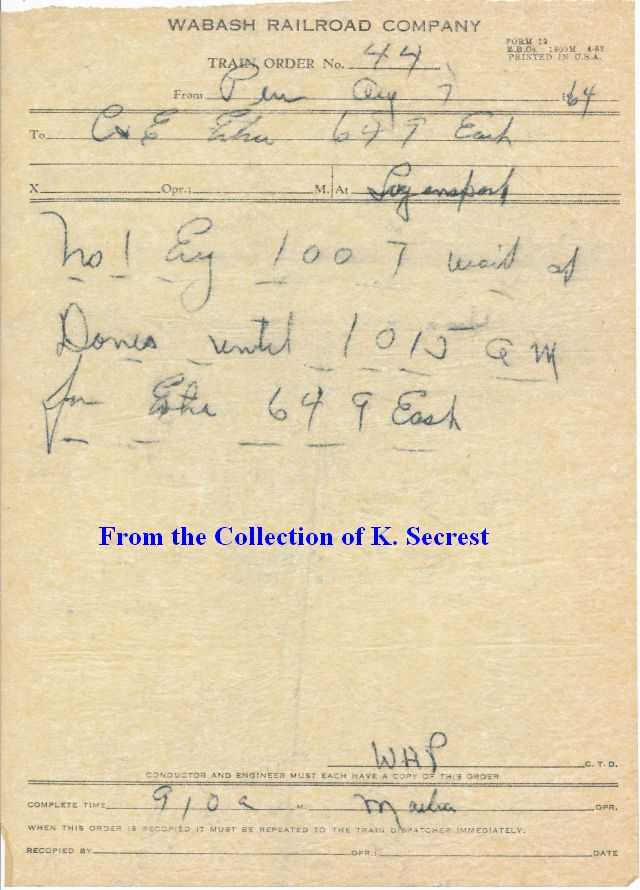 WABASH RAILROAD COMPANY
FORM 19
R.B.Co. 1800M 4-63
PRINTED IN U.S.A.
TRAIN ORDER No. 44
From Peru Aug 7 1964
To C&E Extra 649 East
X Opr.; M. At Logansport
No 1 Eng 1007 wait at
Dones until 1015 A M
for Extra 649 East
From the Collection of K. Secrest
WHP C.T.D.
CONDUCTOR AND ENGINEER MUST EACH HAVE A COPY OF THIS ORDER
COMPLETE TIME 910 a M. OPR.
WHEN THIS ORDER IS RECOPIED IT MUST BE REPEATED TO THE TRAIN DISPATCHER IMMEDIATELY.
RECOPIED BY OPR.: DATE